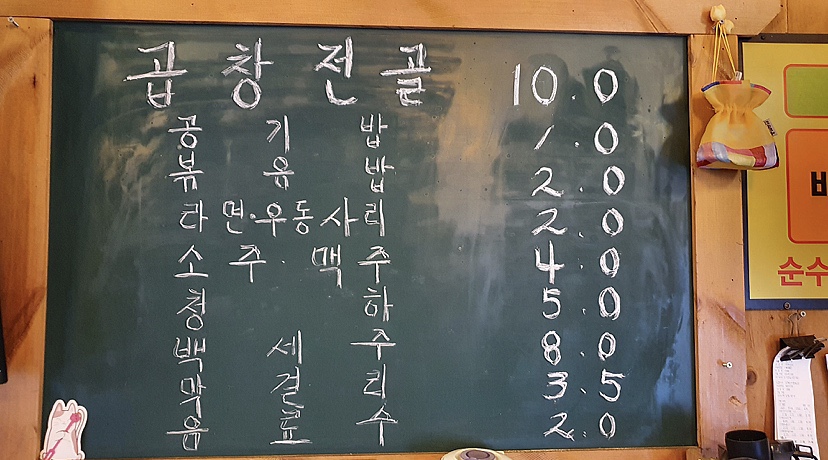 곱창전골 10.0
공기밥 1.0
볶음밥 2.0
라면·우동사리 2.0
소주·맥주 4.0
청하 5.0
백세주 8.0
막걸리 3.5
음료수 2.0
순수